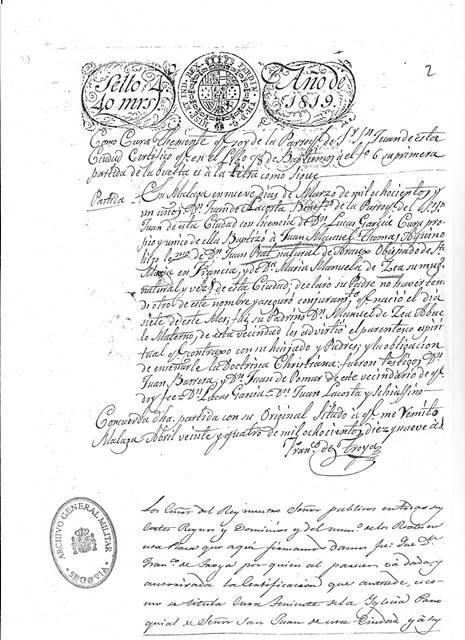 2
Sello 4.
40 mrs
Año de
1819.
Como Cura theniente q.e soy de la Parroq.l de S.r S.n Juan de esta
Ciudad Certifico q.e en el Libro 98 de Baptismos al f.o 6 su primera
partida de la buelta es á la letra como sigue
Partida En Malaga en nueve dias de Marzo de mil ochocientos y
un años; D.n Juan de Lacosta Benef.do de la Parroq.l del S.or S.n
Juan de esta Ciudad con licencia de D.n Lucas Garcia Cura
propio y unico de ella Baptizó á Juan Manuel Thomas
hijo de D.n Juan Prat natural de Obispado de
en Francia, y de D.a Maria Manuela de Zea su mug.r
natural y vez.s de esta Ciudad; declaró su Padre no haver teni
do otro de este nombre y aseguró con juram.to q.e nació el dia
siete de este Mes; fue su Padrino D.n Manuel de Zea Abue
lo Materno, de esta vecindad les advirtió el parentesco spiri
tual q.e contrajo con su hahijado y Padres; y la obligacion
de enseñarle la Doctrina Christiana: fueron testigos D.n
Juan Barrera y D.n Juan de Pomar de este vecindario de q.e
doy fee= D.n Lucas Garcia= D.n Juan Lacosta y
Concuerda dha. partida con su Original Sitado á q.e me remito
Malaga Abril veinte y quatro de mil ochocientos diez y nueve a.s
Fran.co de Troya
ARCHIVO GENERAL MILITAR
SEGOVIA
Los Essnos. del Rey nuestro Señor publicos en todos sus
Cortes Reynos y Dominios y del num.o de los Reales en
esta Plaza que aqui firmamos damos fee: Que D.n
Fran.co de Troya por quien al parecer va dada y
autorizada la Certificacion que antecede, es co
mo se titula Cura theniente de la Iglesia Parro
quial de Señor San Juan de esta Ciudad, y á